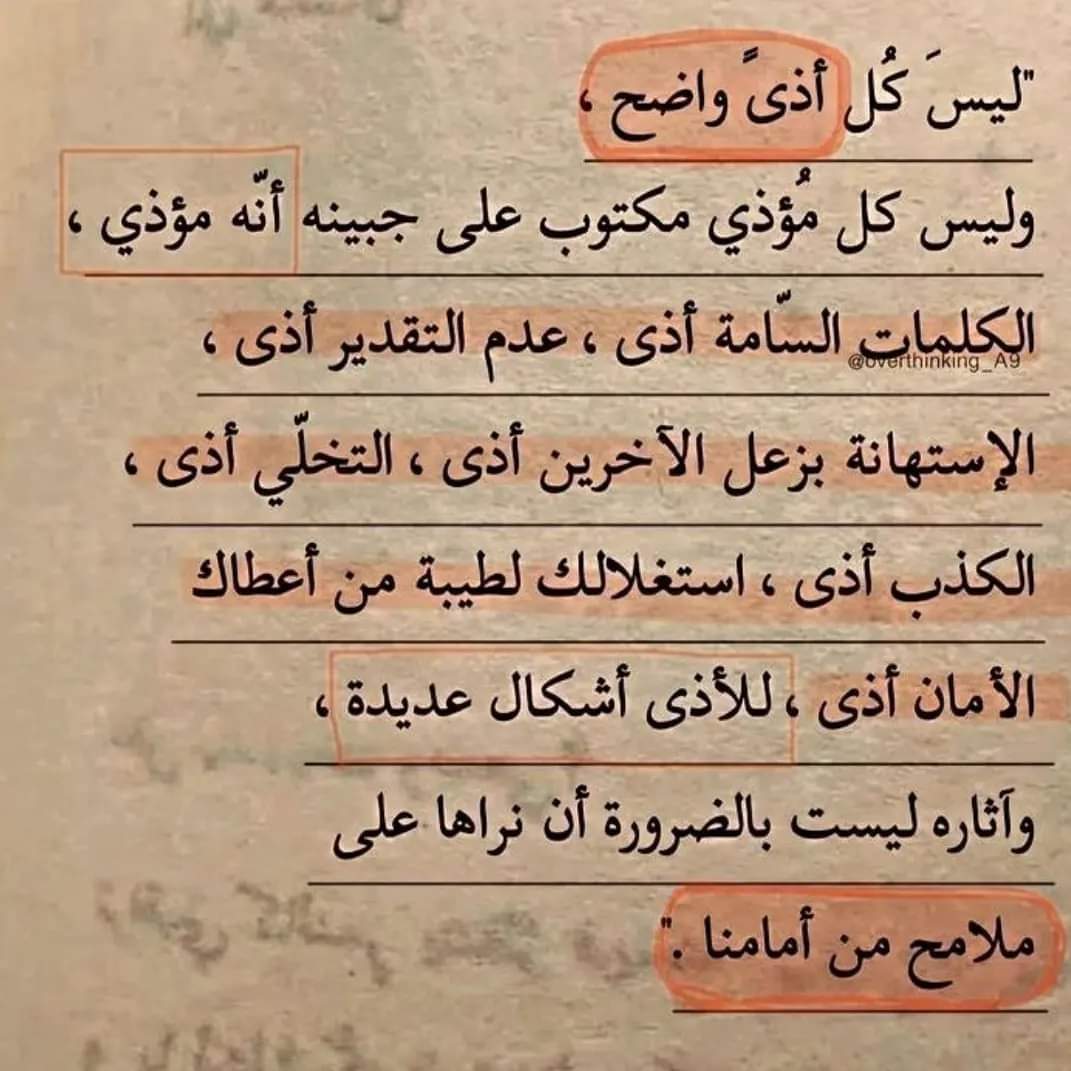 "ليسَ كُل أذىً واضح ،
وليس كل مُؤذي مكتوب على جبينه أنّه مؤذي ،
الكلمات السّامة أذى ، عدم التقدير أذى ،
@overthinking_A9
الإستهانة بزعل الآخرين أذى ، التخلّي أذى ،
الكذب أذى ، استغلالك لطيبة من أعطاك
الأمان أذى ، للأذى أشكال عديدة ،
وآثاره ليست بالضرورة أن نراها على
ملامح من أمامنا ."